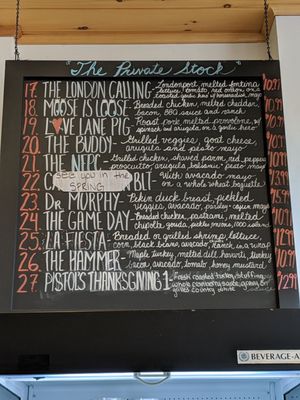 "The Private Stock"
17. THE LONDON CALLING- Londonport, melted fontina
lettuce, tomato, red onion, on a
toasted garlic hero w/ horseradish mayo
18. MOOSE IS LOOSE- Breaded chicken, melted cheddar,
bacon, BBQ sauce and ranch
19. LOVE LANE PIG- Roast pork, melted provolone, w/
spinach and arugula on a garlic hero
20. THE BUDDY- Grilled veggies, goat cheese
arugula and pesto mayo
21. THE NEPC- Grilled chicken, shaved parm, red peppers
prosciutto, arugula, balsamic + pesto mayo
22. BIT- With avocado mayo
on a whole wheat baguette
see you in the
SPRING
23. DR. MURPHY- Pekin duck breast, pickled
veggies, avocado, parsley + caper mayo
24. THE GAME DAY- Breaded chicken, pastrami, melted
chipotle gouda, pickles, 1000 island
25. LA FIESTA- Breaded or grilled shrimp, lettuce,
corn, black beans, avocado, ranch in a wrap
26. THE HAMMER- Maple turkey, melted dill havarti, turkey
bacon, avocado, tomato, honey mustard
27. PISTOL'S THANKSGIVING 1- Fresh roasted turkey, stuffing
whole cranberry sauce, gravy on
country white
$12.99
BEVERAGE-A